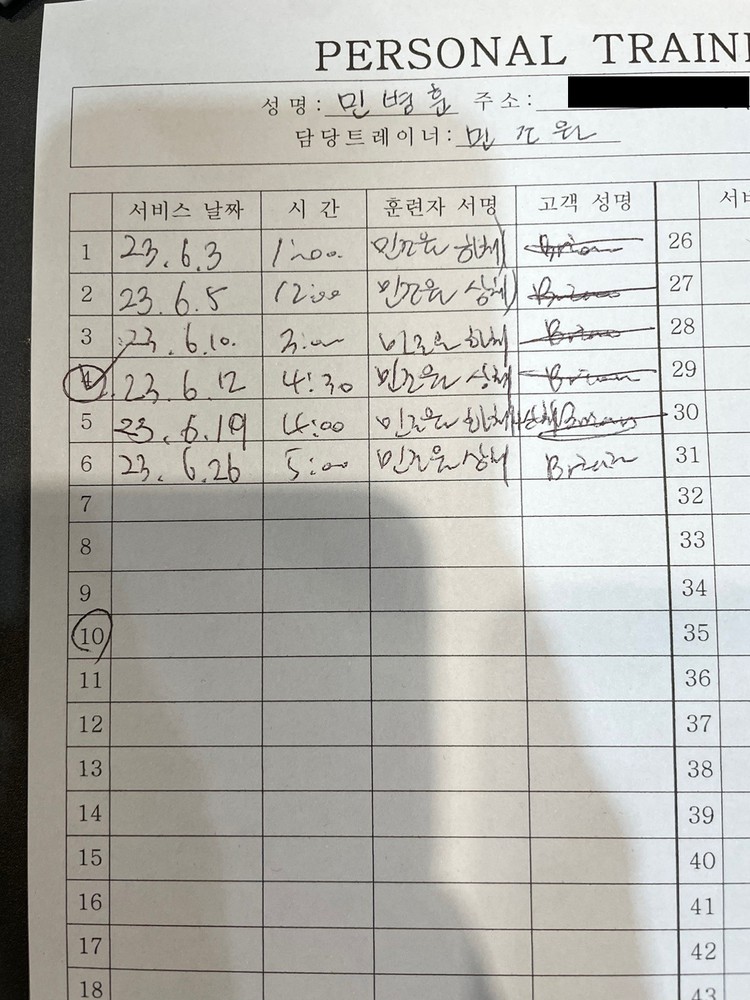 PERSONAL TRAINI
성명: 민병훈 주소:
담당트레이너: 민조원
서비스 날짜 시 간 훈련자 서명 고객 성명 서비
1 23.6.3 1:00 하체 Brian 26
2 23.6.5 12:00 상체 Brian 27
3 23.6.10. 3:00 하체 Brian 28
4 23.6.12 4:30 상체 Brian 29
5 23.6.19 4:00 하체 Brian 30
6 23.6.26 5:00 상체 Brian 31
7 32
8 33
9 34
10 35
11 36
12 37
13 38
14 39
15 40
16 41
17 42
18 43